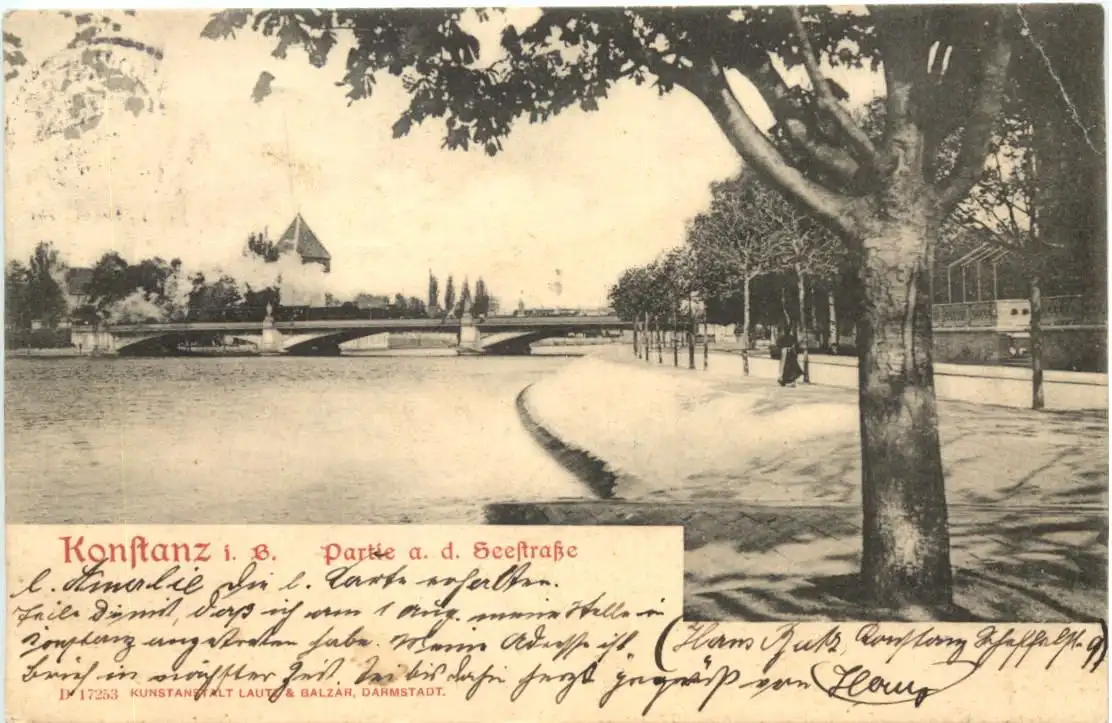 Konstanz i. B. Partie a. d. Seestraße
l. Amalie Die l. Karte erhalten.
Teile Dir mit, daß ich am 1 Aug. meine Stelle in
Konstanz angetreten habe. Meine Adresse ist
(Hans Butz, Konstanz Scheffelstr. 9)
Brief in nächster Zeit. Sei bis dahin herzl. gegrüßt von Hans
D 17253 KUNSTANSTALT LAUTZ & BALZAR, DARMSTADT.